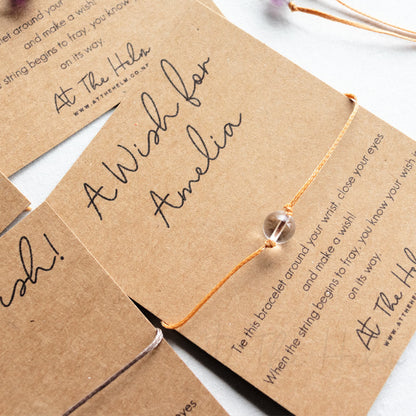 bracelet around your wrist, close your eyes
and make a wish!
the string begins to fray, you know your wish is
on its way.
At The Helm
WWW.ATTHEHELM.CO.NZ
A Wish for
Amelia
Tie this bracelet around your wrist, close your eyes
and make a wish!
When the string begins to fray, you know your wish is
on its way.
At The Helm
WWW.ATTHEHELM.